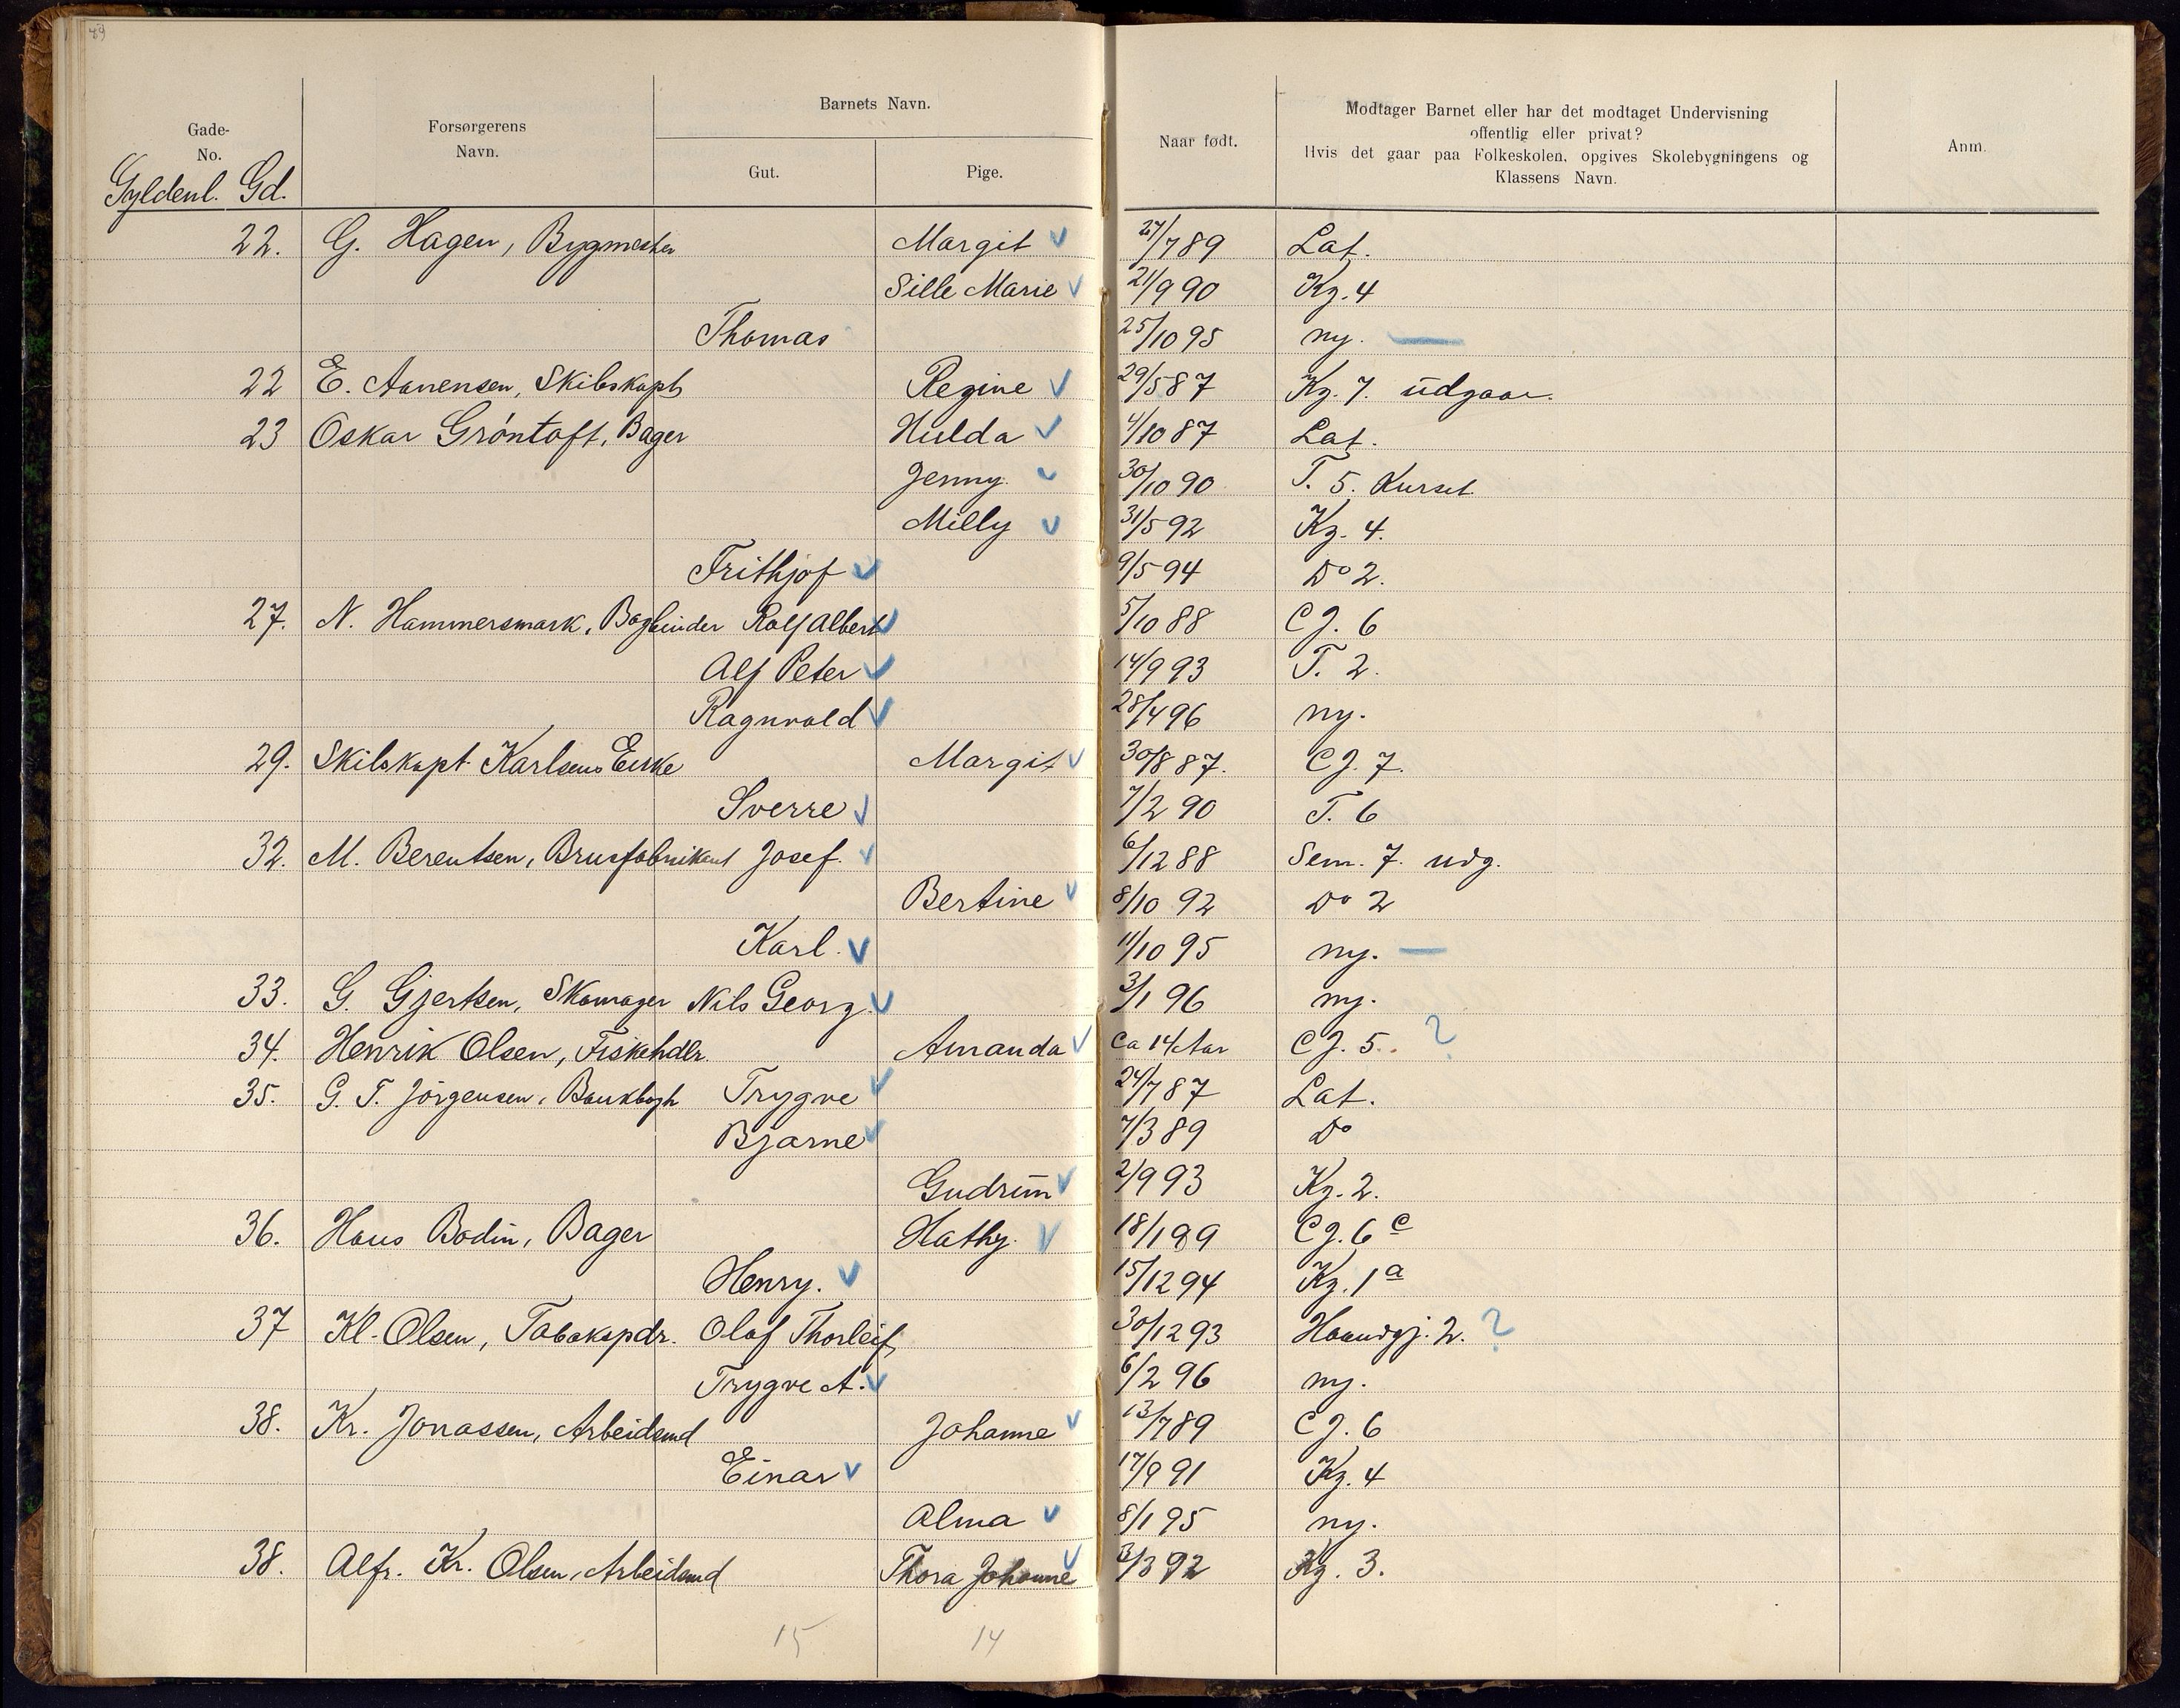 49
Gade-
No.
Forsørgerens
Navn.
Barnets Navn.
Gut.
Pige.
Naar født.
Modtager Barnet eller har det modtaget Undervisning
offentlig eller privat?
Hvis det gaar paa Folkeskolen, opgives Skolebygningens og
Klassens Navn.
Anm.
Gyldenl. Gd.
22. G. Hagen, Bygmester Margit 27/7 89 Lat.
Sille Marie 21/9 90 Kg. 4
Thomas 25/10 95 ny. —
22 E. Aanensen, Skibskapt Regine 29/5 87 Kg. 7. udgaar.
23 Oskar Gröntoft, Bager Hulda 4/10 87 Lat.
Jenny 30/10 90 T. 5. Kurset
Milly 31/5 92 Kg. 4.
Frithjof 9/5 94 Do 2.
27. N. Hammersmark, Bogbinder Rolf Albert 5/10 88 CJ. 6
Alf Peter 14/9 93 T. 2.
Ragnvald 28/4 96 ny.
29. Skibskapt Karlsens Enke Margit 30/8 87. CJ. 7.
Sverre 7/2 90 T. 6
32. M. Berentsen, Brusfabrikant Josef. 6/12 88 Sem. 7. udg.
Bertine 8/10 92 Do 2
Karl. 11/10 95 ny. —
33. G. Gjertsen, Skomager Nils Georg. 3/1 96 ny.
34. Henrik Olsen, Fiskehdlr. Amanda ca 14 Aar CJ. 5. ?
35. G. T. Jörgensen, Bankbogh Trygve 24/7 87 Lat.
Bjarne 7/3 89 Do
Gudrun 2/9 93 Kg. 2.
36. Hans Bodin, Bager Hathy. 18/1 89 CJ. 6 c
Henry. 15/12 94 Kg. 1 a
37 Kl. Olsen, Tobakspdr. Olaf Thorleif 30/12 93 Haandgj. 2. ?
Trygve A. 6/2 96 ny.
38. Kr. Jonassen, Arbeidsmd Johanne 13/7 89 CJ. 6
Einar 17/9 91 Kg. 4
Alma 8/1 95 ny.
38. Alfr. Kr. Olsen, Arbeidsmd Thora Johanne 3/3 92 Kg. 3.
15 14